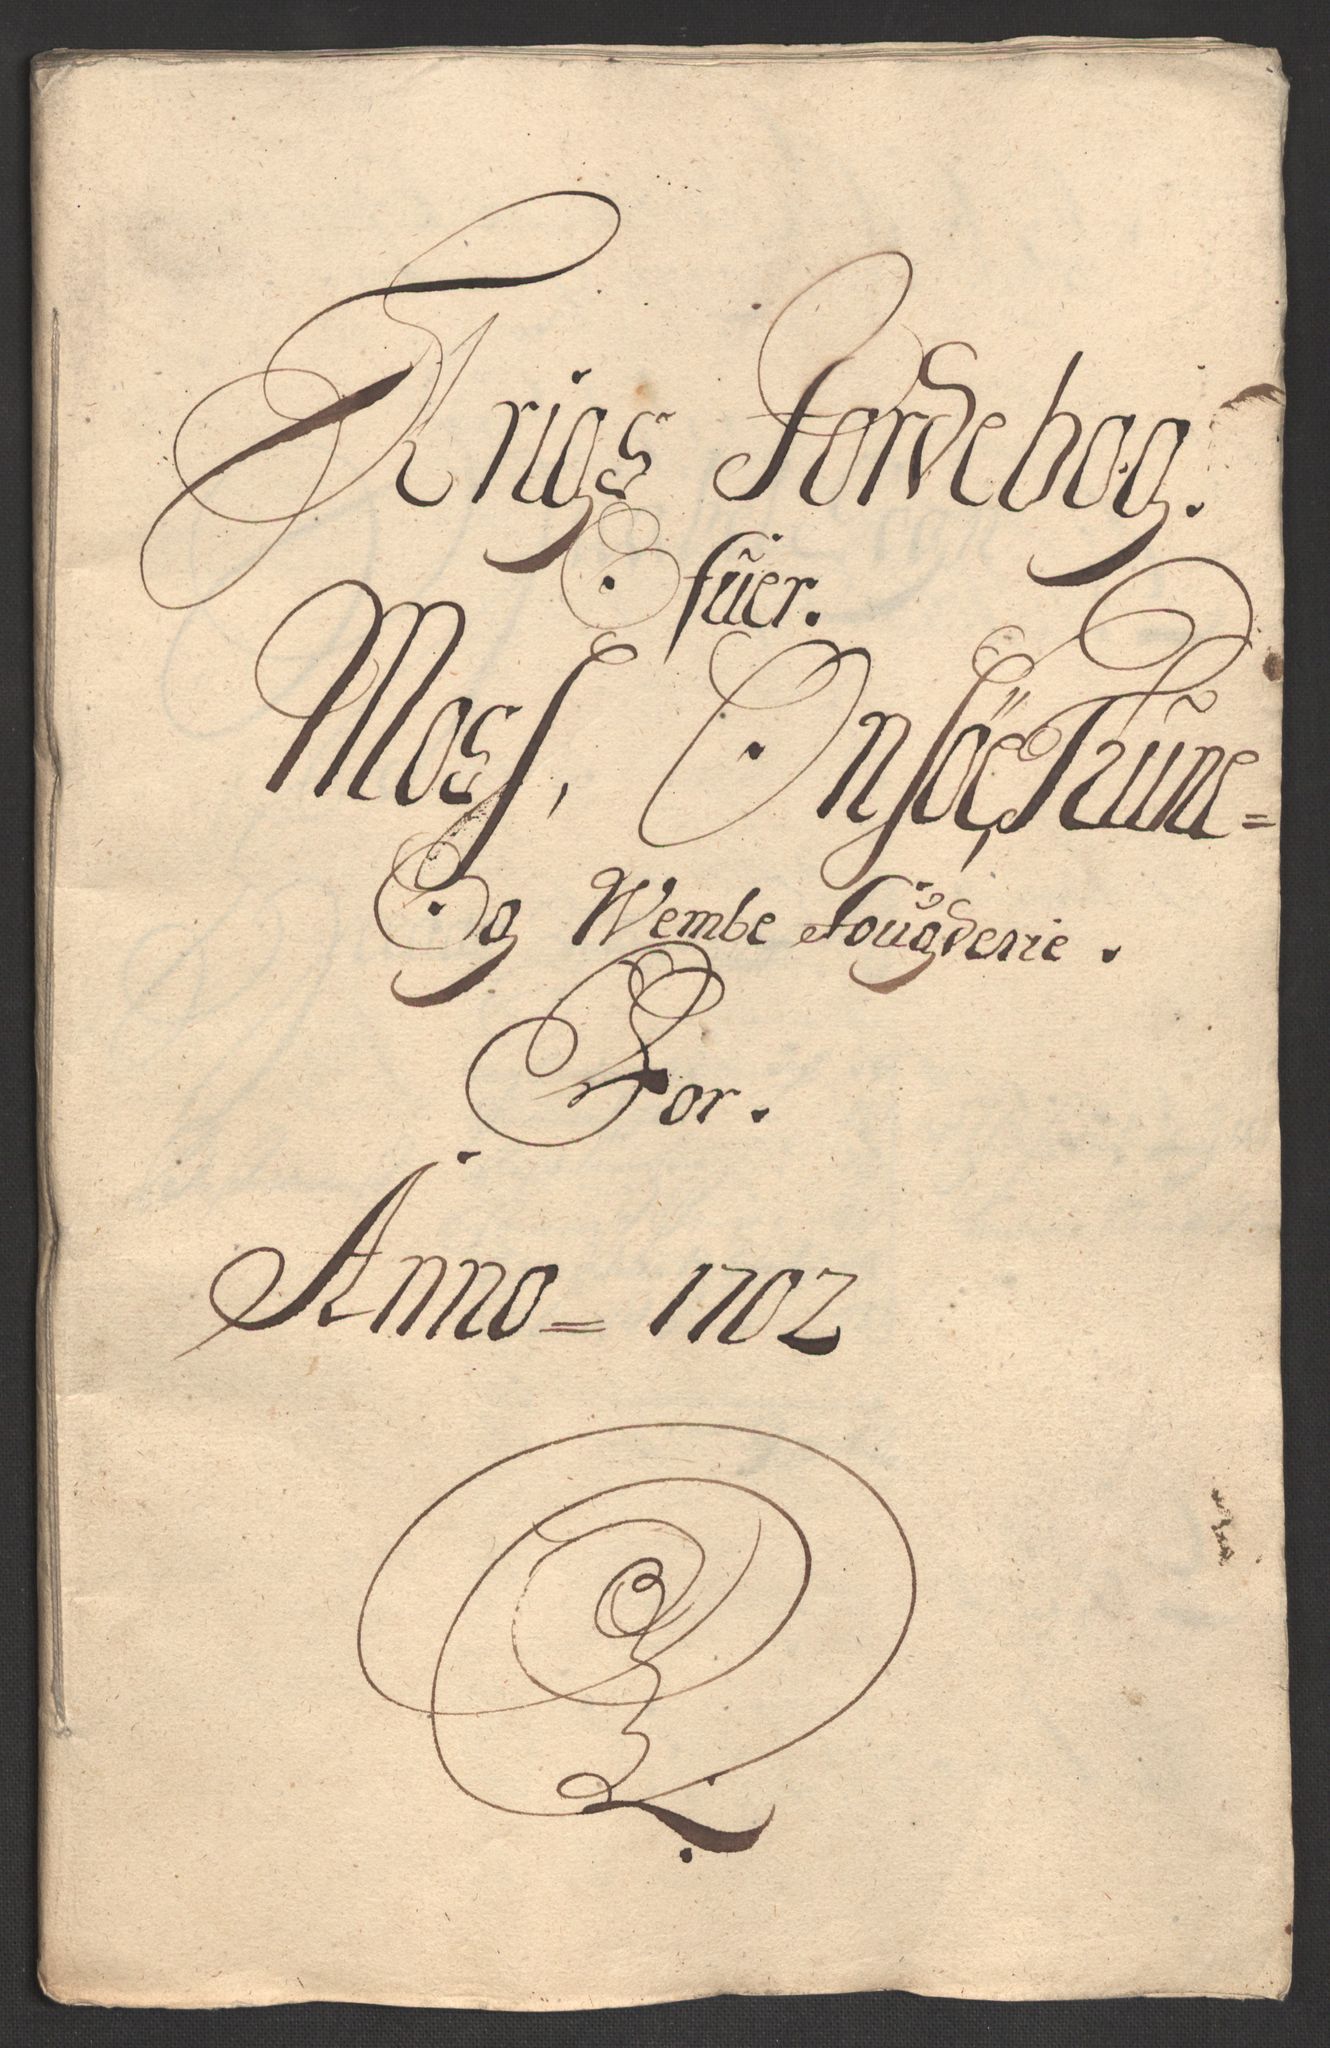 Krigs Jordebog.
Ofuer.
Moss, Onsöe, Tune=
Og Wembe Fougderie.
For.
Anno= 1702